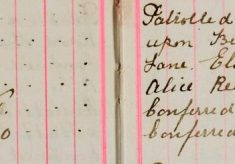 Patrolled
upon Be
Jane. El
Alice Re
conferred
conferred